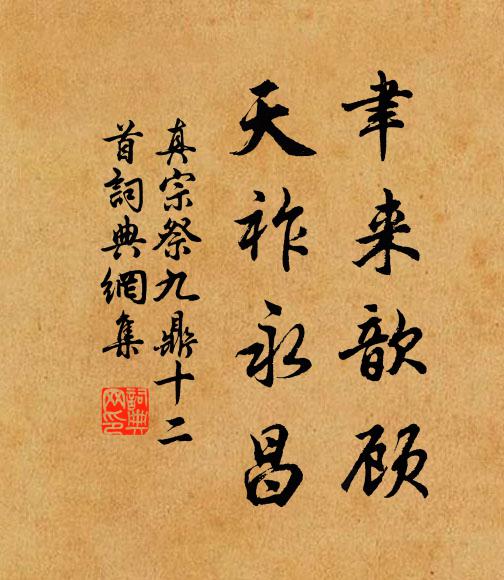 聿来歆顾
天祚永昌
真宗祭九鼎十二
首詞典網集
詞典
网印